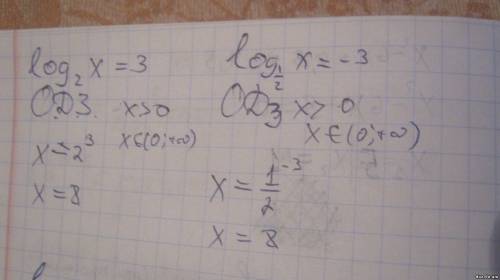 log₂ x = 3
ОДЗ x>0
x∈(0;+∞)
x=2³
x=8
log½ x = -3
ОДЗ x>0
x∈(0;+∞)
x = 1/2⁻³
x = 8